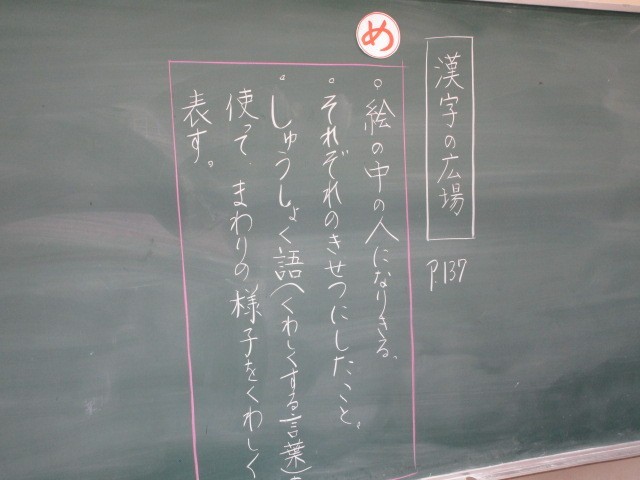 漢字の広場
P.137
め
。絵の中の人になりきる。
。それぞれのきせつにしたこと。
。しゅうしょく語(くわしくする言葉)
使って、まわりの様子をくわしく
表す。